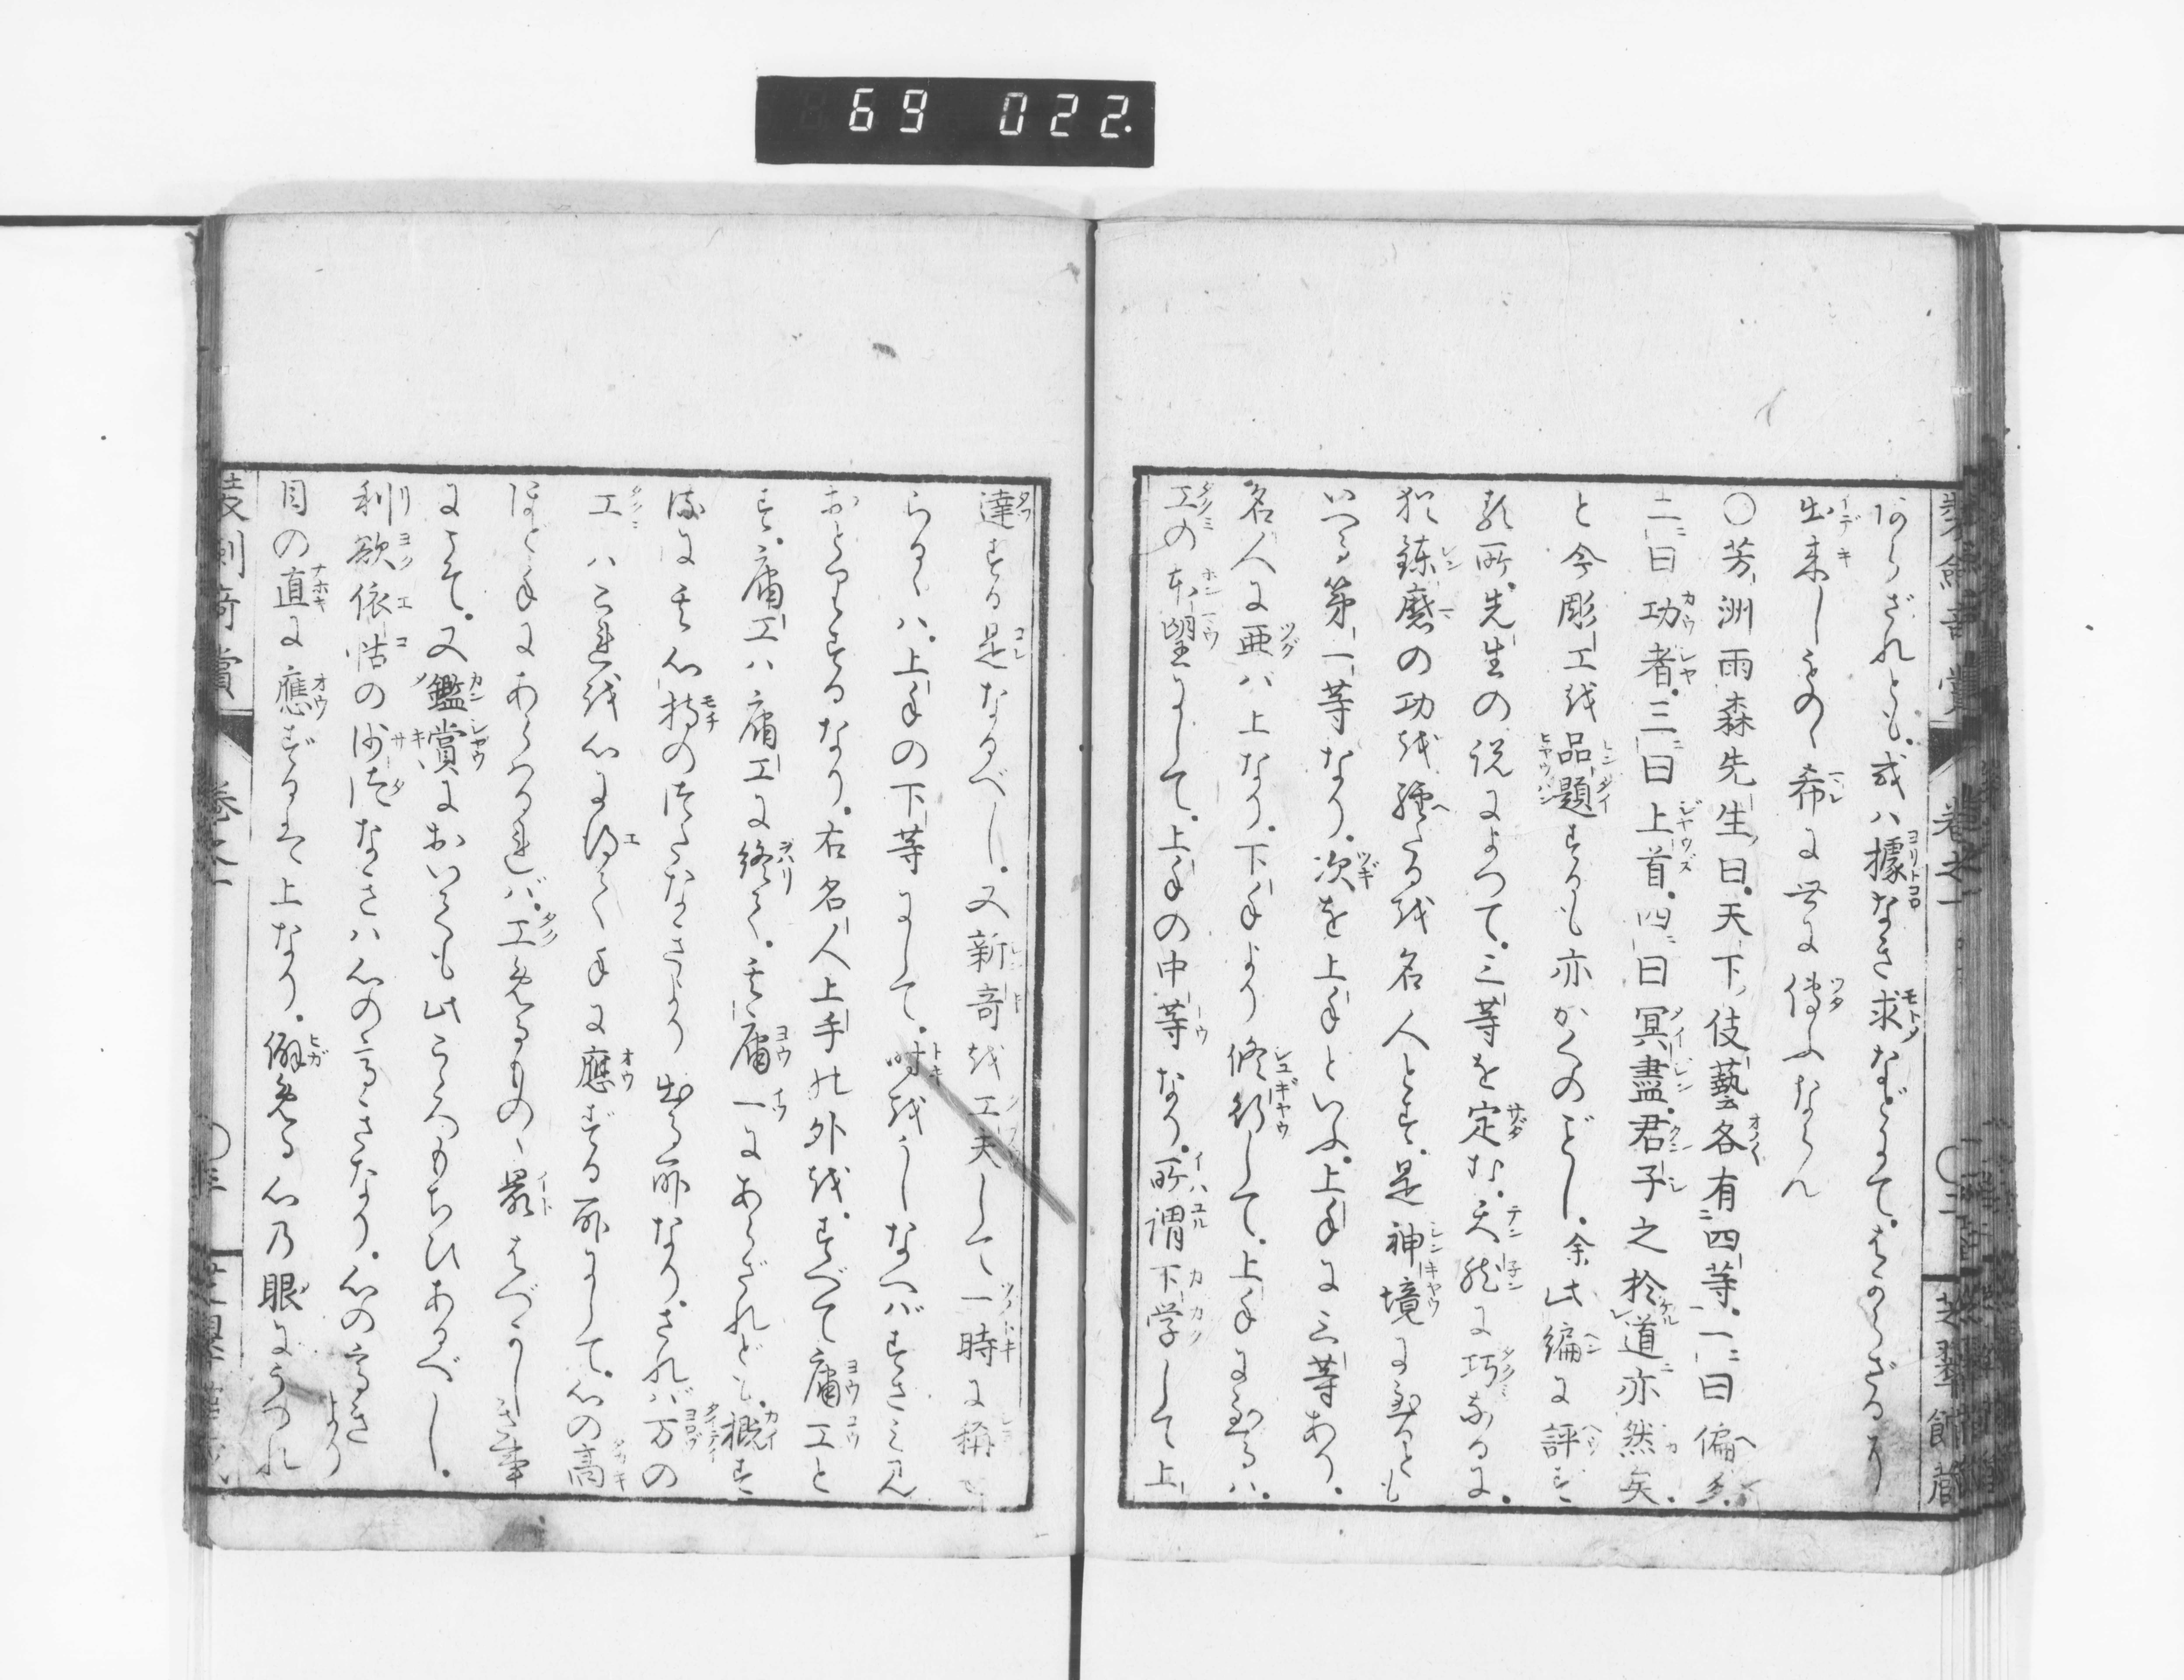 69 022.
あらざれども。或ハ據なき求などにて。はからざるに
出来しもの、希に世に傳ふならん
○芳洲雨森先生曰。天下伎藝各有四等。一曰偏多。
二曰功者。三曰上首。四曰冥盡。君子之於道亦然矣。
と今彫工を品題するも亦かくのごとし。余此編に評す
る所。先生の説によつて。三等を定む。天然に巧なるに。
猶錬磨の功を經たるを名人とす。是神境に至るとも
いへる第一等なり。次を上手といふ。上手に三等あり。
名人に亜ハ上なり。下手より修行して。上手に至るハ。
工の本望にして。上手の中等なり。所謂下学して上
達する是なるべし。又新奇を工夫して一時に稱せ
らるゝハ。上手の下等にして。時をうしなへバすさミ見
おとりするなり。右名人上手の外を。すべて庸工と
す。庸工ハ庸工に終て。其庸一にあらざれども。概す
るに其心持のつたなきより出る所なり。されバ万の
工ハこれを心に得て手に應ずる所にして。心の高
ほど手にあらハるれバ。工めるもの、最はづかしき事
にこそ。又鑑賞においても此こゝろもちひあるべし。
利欲依怙の沙汰なきハ心の高きなり。心の高きより
目の直に應ずるを上なり。僻める心の眼にうつれ
装劍奇賞 卷之一